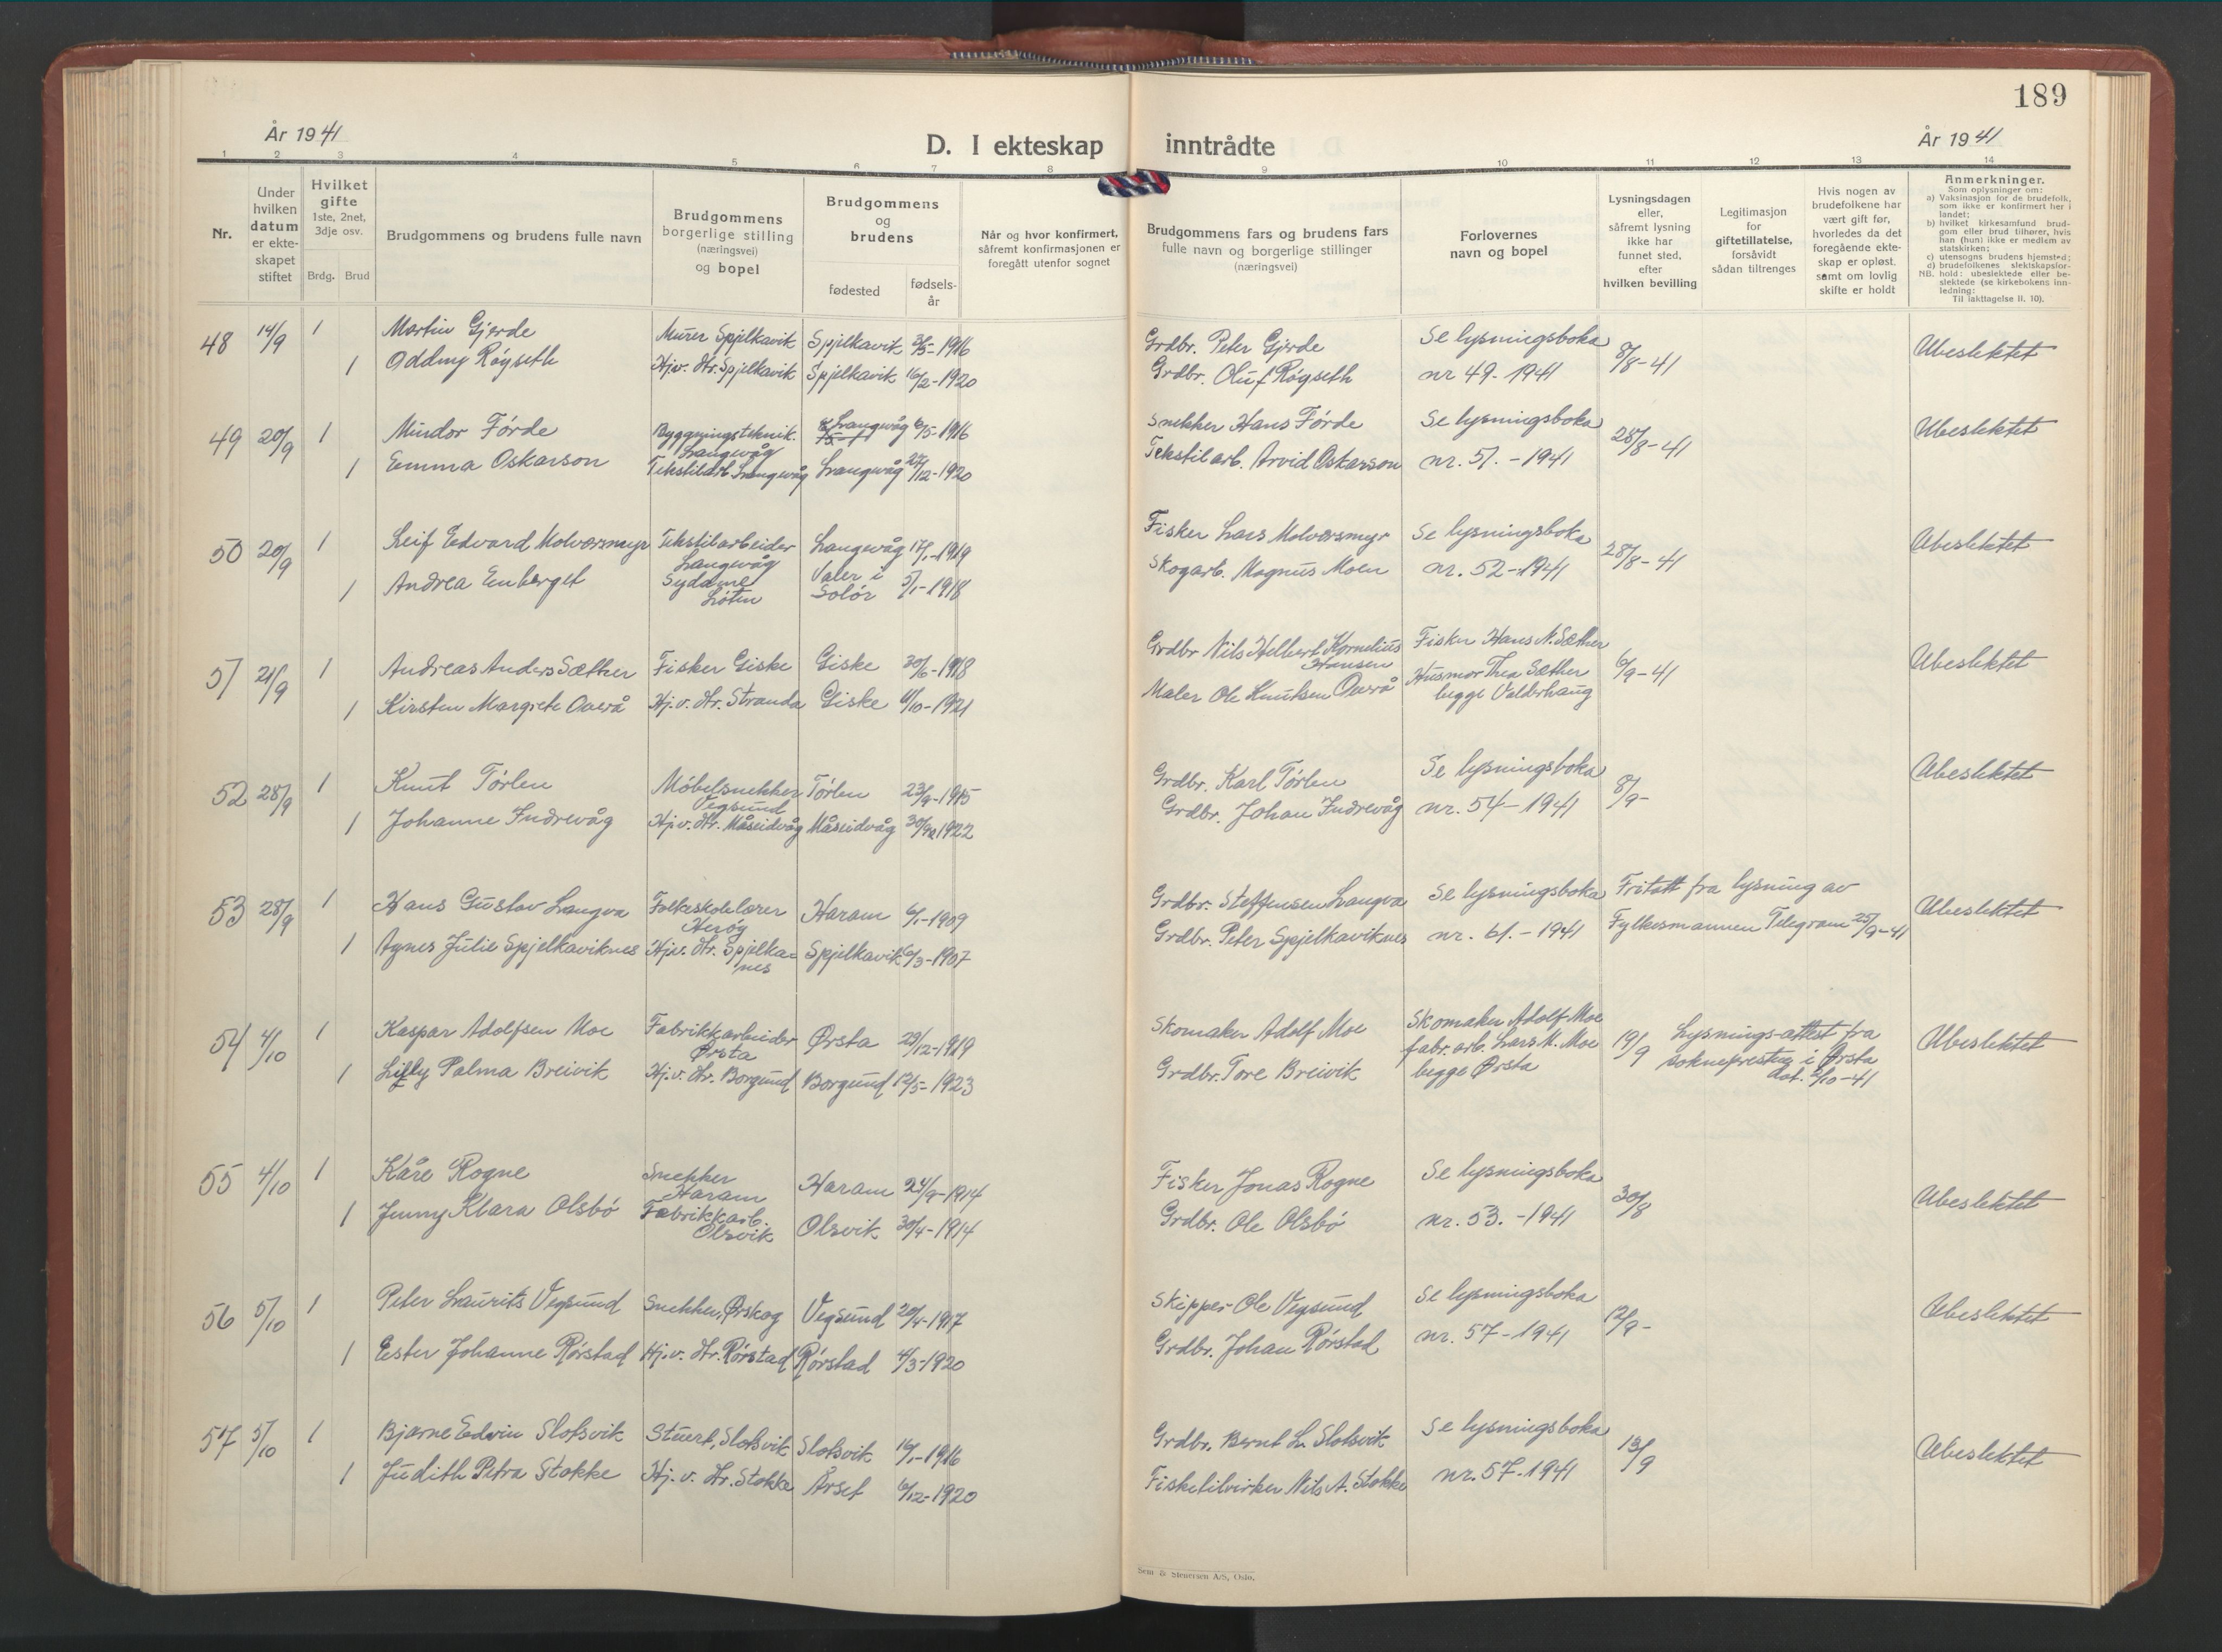 189
År 1941
D. I ekteskap inntrådte
År 1941
1 2 3 4 5 6 7 8 9 10 11 12 13 14
Nr.
Under hvilken datum er ekteskapet stiftet
Hvilket gifte 1ste, 2net, 3dje osv.
Brdg. Brud
Brudgommens og brudens fulle navn
Brudgommens borgerlige stilling (næringsvei) og bopel
Brudgommens og brudens
fødested
fødselsår
Når og hvor konfirmert, såfremt konfirmasjonen er foregått utenfor sognet
Brudgommens fars og brudens fars fulle navn og borgerlige stillinger (næringsvei)
Forlovernes navn og bopel
Lysningsdagen eller, såfremt lysning ikke har funnet sted, efter hvilken bevilling
Legitimasjon for giftetillatelse, forsåvidt sådan tiltrenges
Hvis nogen av brudefolkene har vært gift før, hvorledes da det foregående ekteskap er opløst, samt om lovlig skifte er holdt
Anmerkninger.
Som oplysninger om:
a) Vaksinasjon for de brudefolk, som ikke er konfirmert her i landet;
b) hvilket kirkesamfund brudgom eller brud tilhører, hvis han (hun) ikke er medlem av statskirken;
c) utensogns brudens hjemsted;
d) brudefolkenes slektskapsforhold: ubeslektede eller beslektede (se kirkebokens innledning:
NB. Til iakttagelse II. 10).
48 14/9 1 Martin Gjerde Murer Spjelkavik Spjelkavik 3/5-1916 Grdbr. Peter Gjerde Se lysningsboka 8/8-41 Ubeslektet
1 Oddny Røyseth Hj.v. Hr. Spjelkavik Spjelkavik 16/2-1920 Grdbr. Oluf Røyseth nr 49-1941
49 20/9 1 Mindor Førde Byggningsteknik. Langevåg Langevåg 6/5-1916 Snekker Hans Førde Se lysningsboka 28/8-41 Ubeslektet
1 Emma Oskarson Tekstilarb. Langevåg Langevåg 24/12-1920 Tekstilarb. Arvid Oskarson nr. 51.-1941
50 20/9 1 Leif Edvard Molværsmyr Tekstilarbeider Langevåg Langevåg 17/1-1919 Fisker Lars Molværsmyr Se lysningsboka 28/8-41 Ubeslektet
1 Andrea Enberget Sydame Løten Våler i Solør 5/1-1918 Skogarb. Magnus Moen nr. 52-1941
51 21/9 1 Andreas Anders Sæther Fisker Giske Giske 30/6-1918 Grdbr Nils Helbert Kornelius Hansen Fisker Hans N. Sæther 6/9-41 Ubeslektet
1 Kirsten Margrete Overå Hj.v. Hr. Stranda Giske 11/10-1921 Maler Ole Knutsen Overå Husmor Thea Sæther begge Valderhaug
52 28/9 1 Knut Tørlen Møbelsnekker Vegsund Tørlen 23/9-1915 Grdbr. Karl Tørlen Se lysningsboka 8/9- Ubeslektet
1 Johanne Indrevåg Hj.v. Hr. Måseidvåg Måseidvåg 1922 Grdbr. Johan Indrevåg nr. 54-1941
53 28/9 1 Hans Gustav Langva Folkeskolelærer Herøy Haram 6/1-1909 Grdbr. Steffensen Langva Se lysningsboka Fritatt fra lysning av Ubeslektet
1 Agnes Julie Spjelkaviknes Hj.v. Hr. Spjelkanes Spjelkavik 6/3-1907 Grdbr. Peter Spjelkaviknes nr. 61.-1941 Fylkesmannen Telegram 25/9-41
54 4/10 1 Kaspar Adolfsen Moe Fabrikkarbeider Ørsta Ørsta 29/12-1919 Skomaker Adolf Moe Skomaker Adolf Moe 19/9 Lysnings-attest fra Ubeslektet
1 Lilly Palma Breivik Hj.v. Hr. Borgund Borgund 12/5-1923 Grdbr. Tore Breivik fabr. arb. Lars K. Moe begge Ørsta soknepresten i Ørsta dat. 2/10-41
55 4/10 1 Kåre Rogne Snekker Haram Haram 24/9-1914 Fisker Jonas Rogne Se lysningsboka 30/8 Ubeslektet
1 Jenny Klara Olsbø Fabrikkarb. Olsvik Olsvik 30/4-1914 Grdbr. Ole Olsbø nr. 53.-1941
56 5/10 1 Peter Laurits Vegsund Snekker, Ørskog Vegsund 20/4-1917 Skipper Ole Vegsund Se lysningsboka 12/9- Ubeslektet
1 Ester Johanne Rørstad Hj.v. Hr. Rørstad Rørstad 4/3-1920 Grdbr. Johan Rørstad nr. 57-1941
57 5/10 1 Bjarne Edvin Slotsvik Stuert, Slotsvik Slotsvik 16/1-1916 Grdbr. Bernt L. Slotsvik Se lysningsboka 13/9 Ubeslektet
1 Judith Petra Stokke Hj.v. Hr. Stokke Årset 6/12-1920 Fisketilvirker Nils A. Stokke nr. 57-1941
Sem & Stenersen A/S, Oslo.